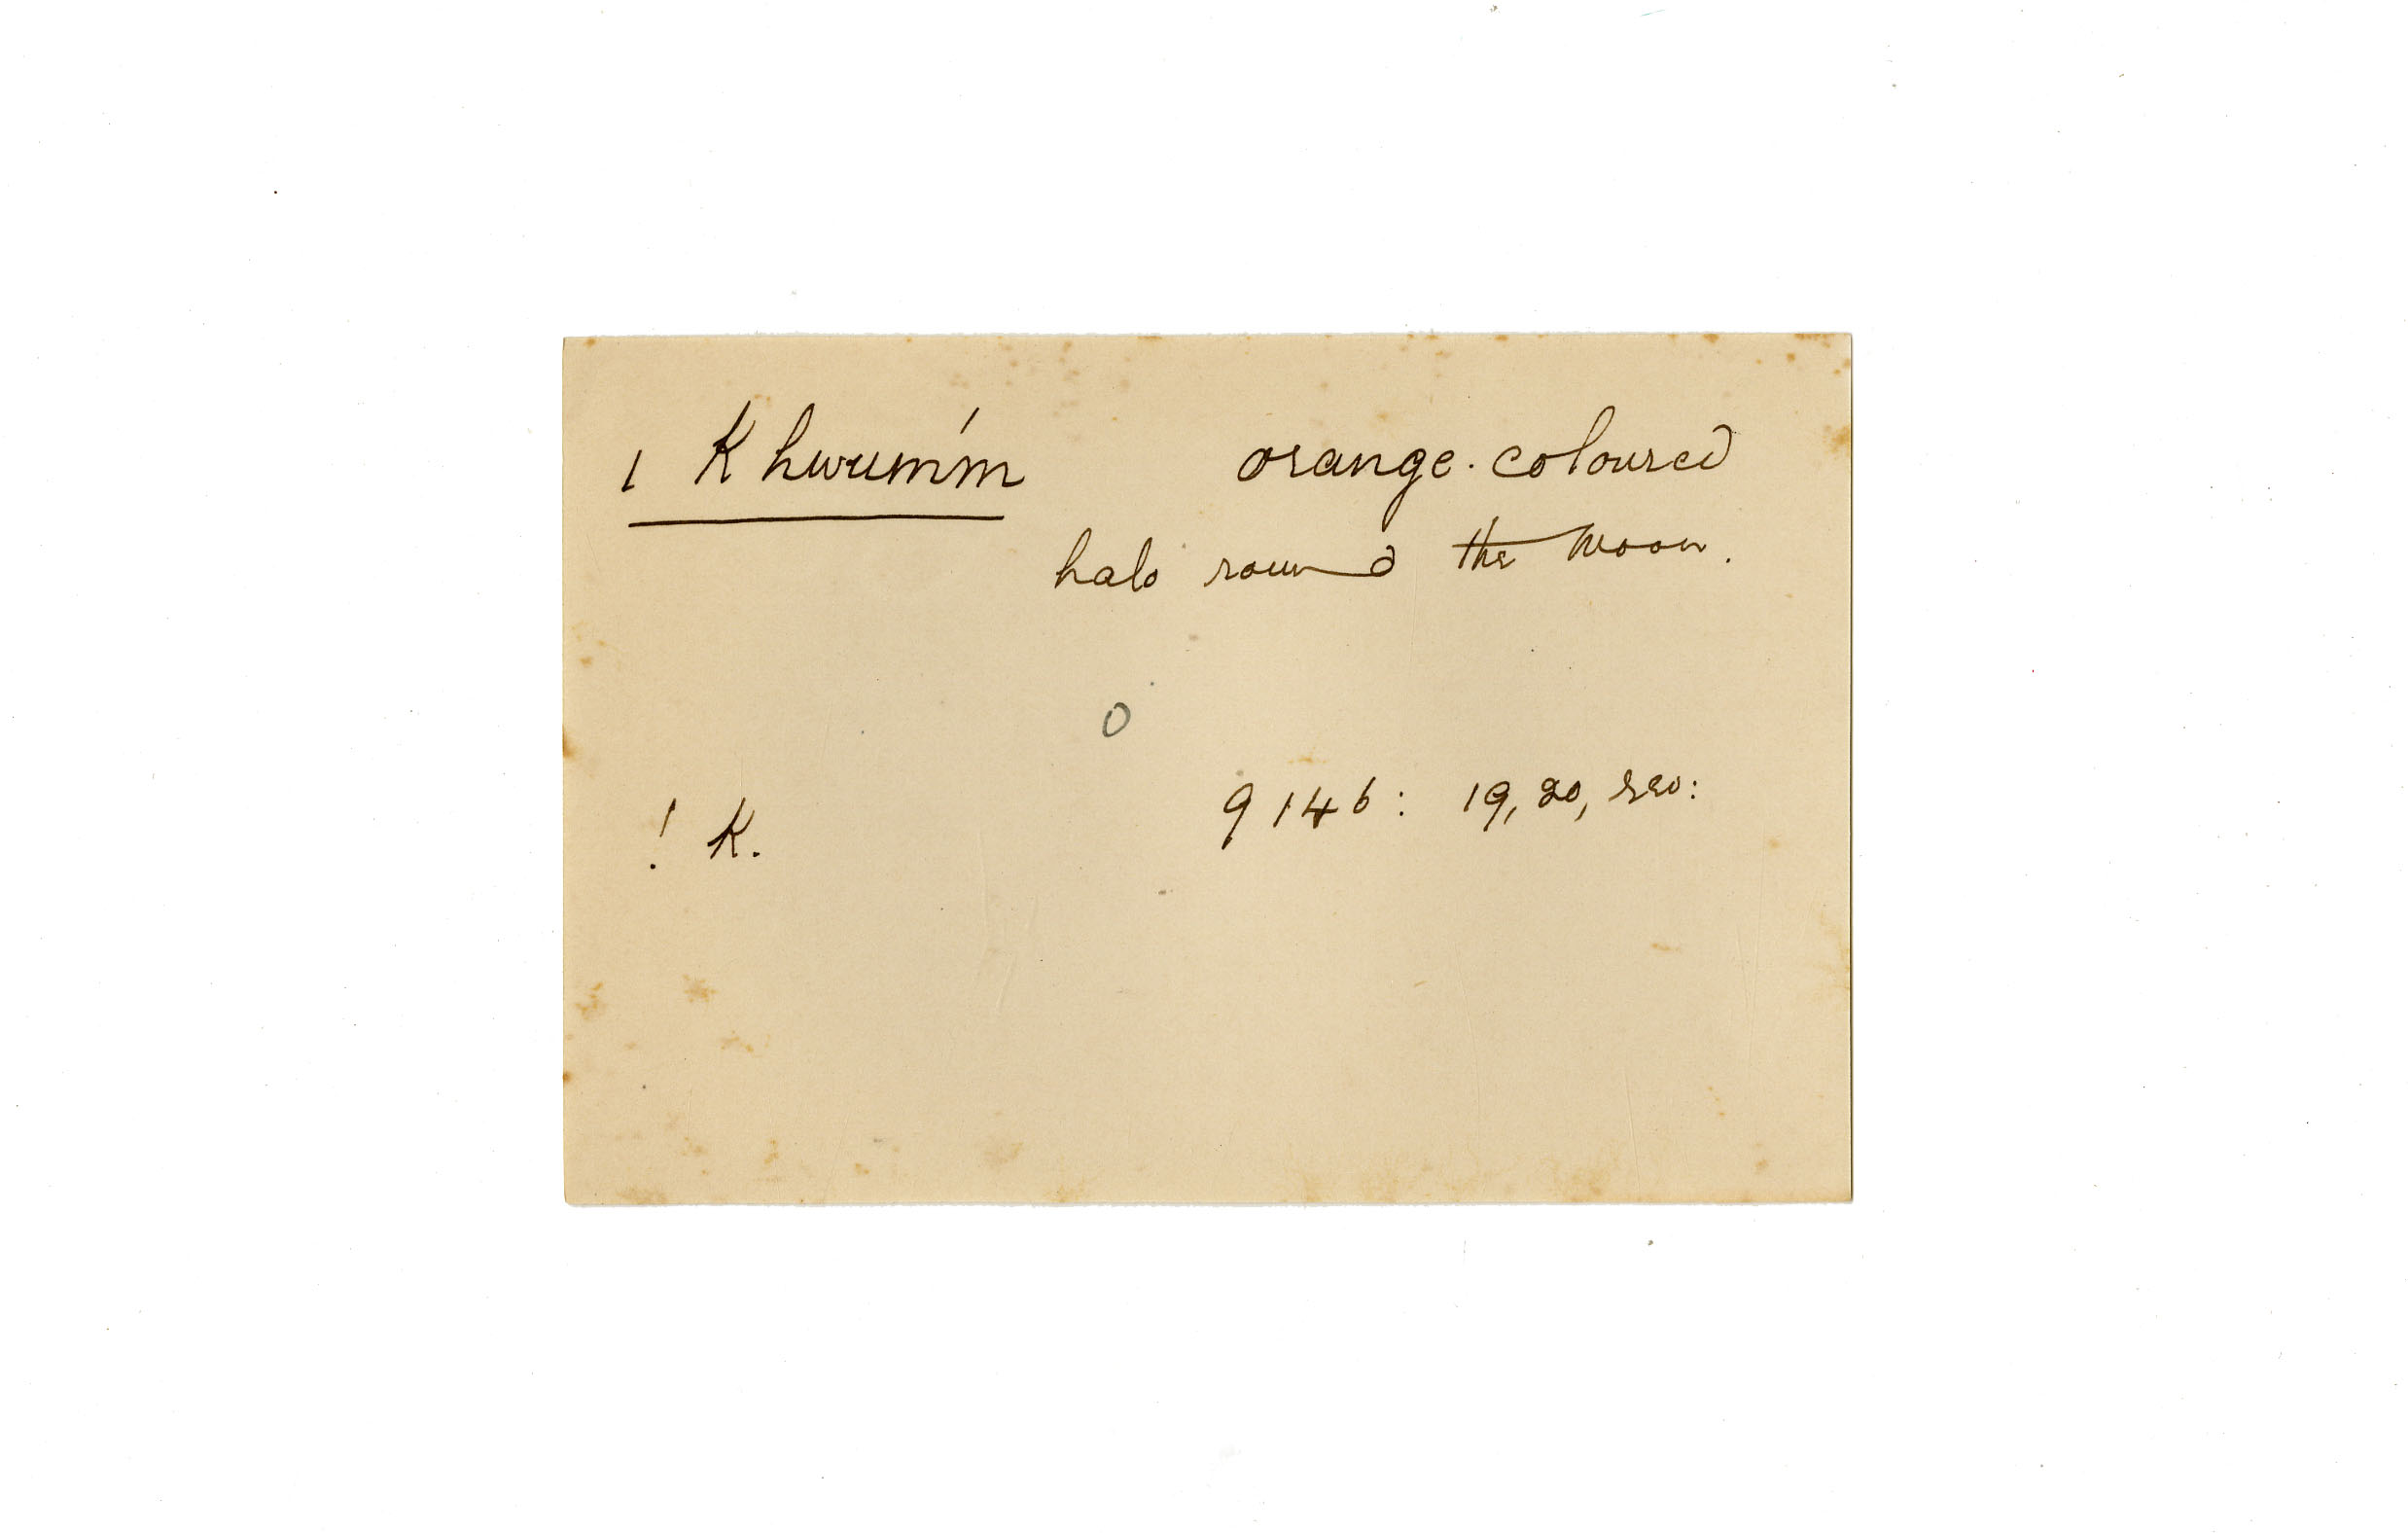 ǀ Khwum'm orange-coloured
halo round the Moon.
0
! K. 9146: 19, 20, rev: